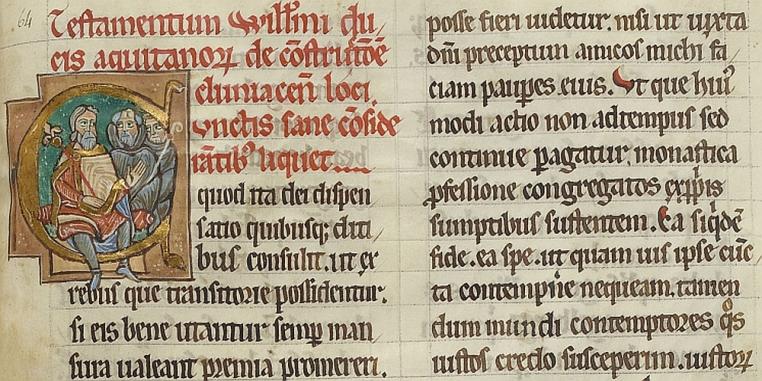 64
Testamentum Willm̄i du/
cis aquitanoꝝ de cōstructōe
cluniacen̄ loci.
Cunctis sane cōside
rātibꝰ liquet.
quod ita dei dispen
satio quibusqꝫ diti/
bus consulit. ut ex
rebus que transitorie possidentur.
si eis bene utantur semꝑ man/
sura ualeant premia promereri.
posse fieri uidetur. nisi ut iuxta
dn̄i preceptum amicos michi fa/
ciam pauꝑes eius. Ut que huiꝰ
modi actio non ad tempus sed
continue pagatur. monastica
ꝓfessione congregatos ex ꝓpriis
sumptibus sustentem. Ea siqͥdē
fide. ea spe. ut quamuis ipse cūc/
ta contempn̄e nequeam. tamen
dum mundi contemptores qͦs
iustos credo susceperim. iustoꝝ